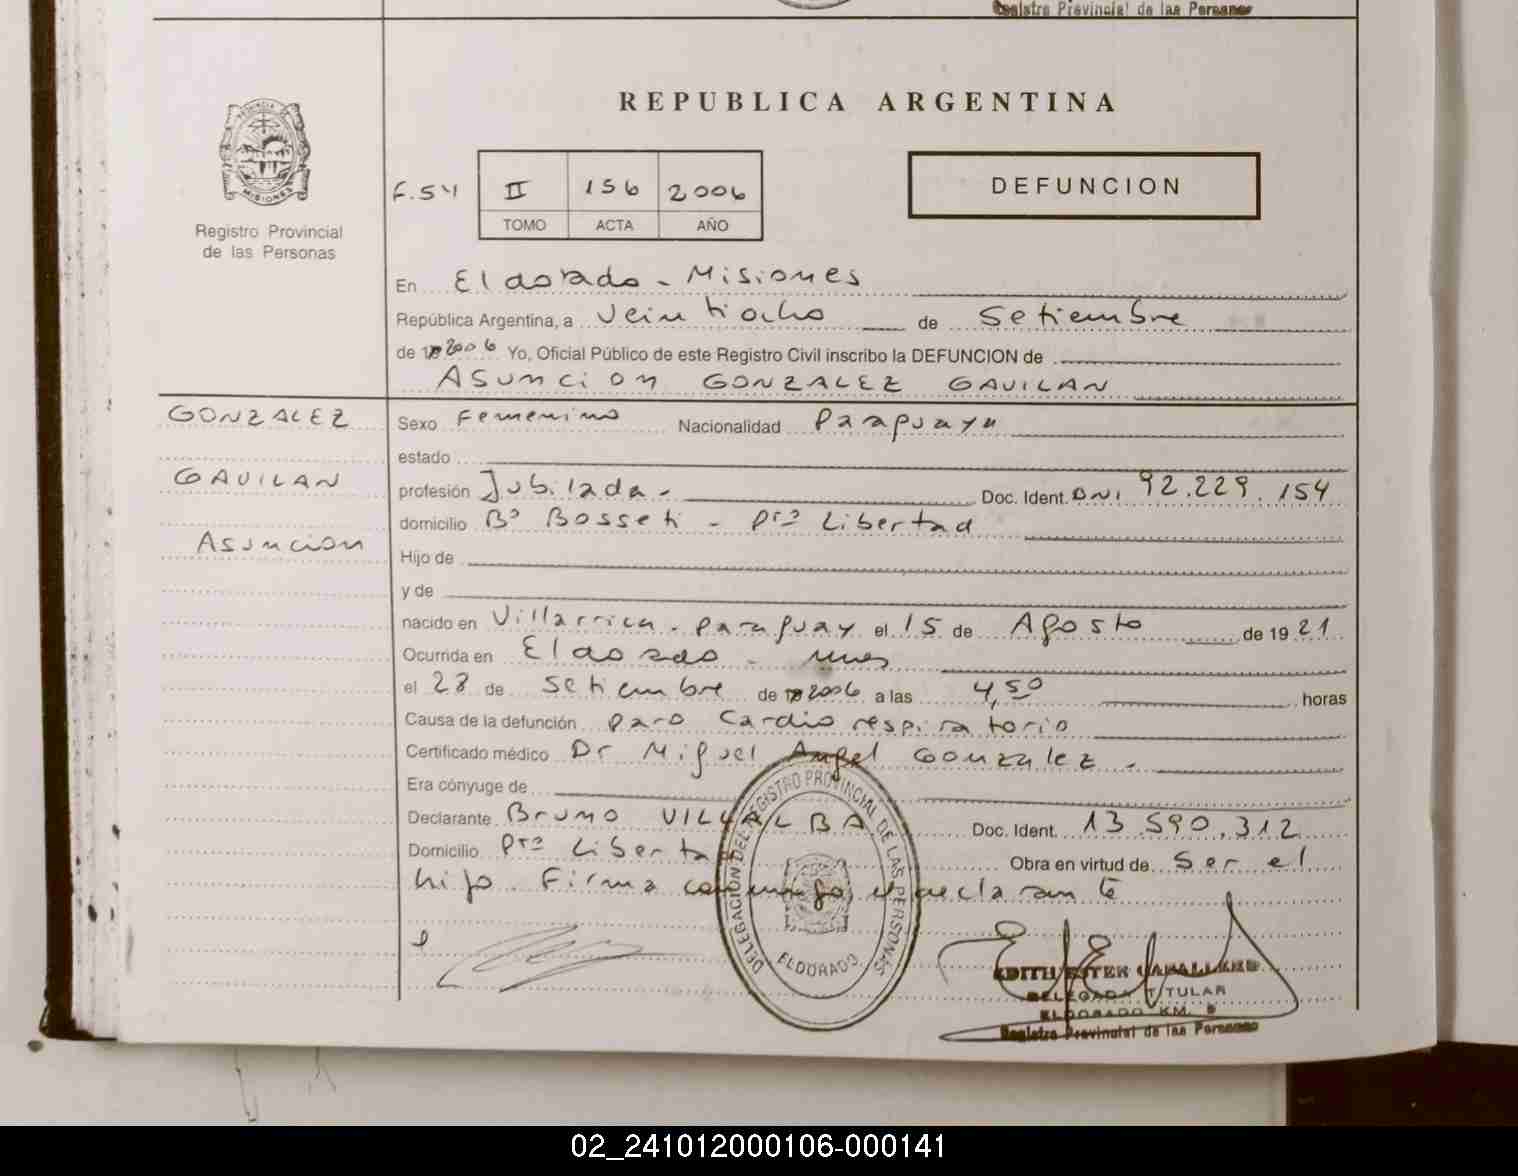 Registro Provincial de las Personas
REPUBLICA ARGENTINA
PROVINCIA DE MISIONES
Registro Provincial
de las Personas
F.54 II 156 2006
TOMO ACTA AÑO
DEFUNCION
En Eldorado - Misiones
República Argentina, a Veintiocho de Setiembre
de 2006 Yo, Oficial Público de este Registro Civil inscribo la DEFUNCION de
ASUNCION GONZALEZ GAVILAN
GONZALEZ
GAVILAN
ASUNCION
Sexo Femenino Nacionalidad Paraguaya
estado
profesión Jubilada - Doc. Ident. DNI 92.229.154
domicilio Bº Bosseti - Ptº Libertad
Hijo de
y de
nacido en Villarrica - Paraguay el 15 de Agosto de 1921
Ocurrida en Eldorado - Mnes
el 28 de Setiembre de 2006 a las 4,50 horas
Causa de la defunción paro Cardio respiratorio
Certificado médico Dr Miguel Angel Gonzalez -
Era cónyuge de
Declarante Bruno VILLALBA Doc. Ident. 13.590.312
Domicilio Ptº Libertad Obra en virtud de Ser el
hijo. Firma conmigo el declarante
DELEGACION DEL REGISTRO PROVINCIAL DE LAS PERSONAS
ELDORADO
EDITH ESTER CABALLERO
DELEGADA TITULAR
ELDORADO KM. 9
Registro Provincial de las Personas
02_241012000106-000141